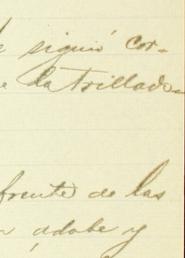 siguió cor-
e la trillado
frente de las
adobe y